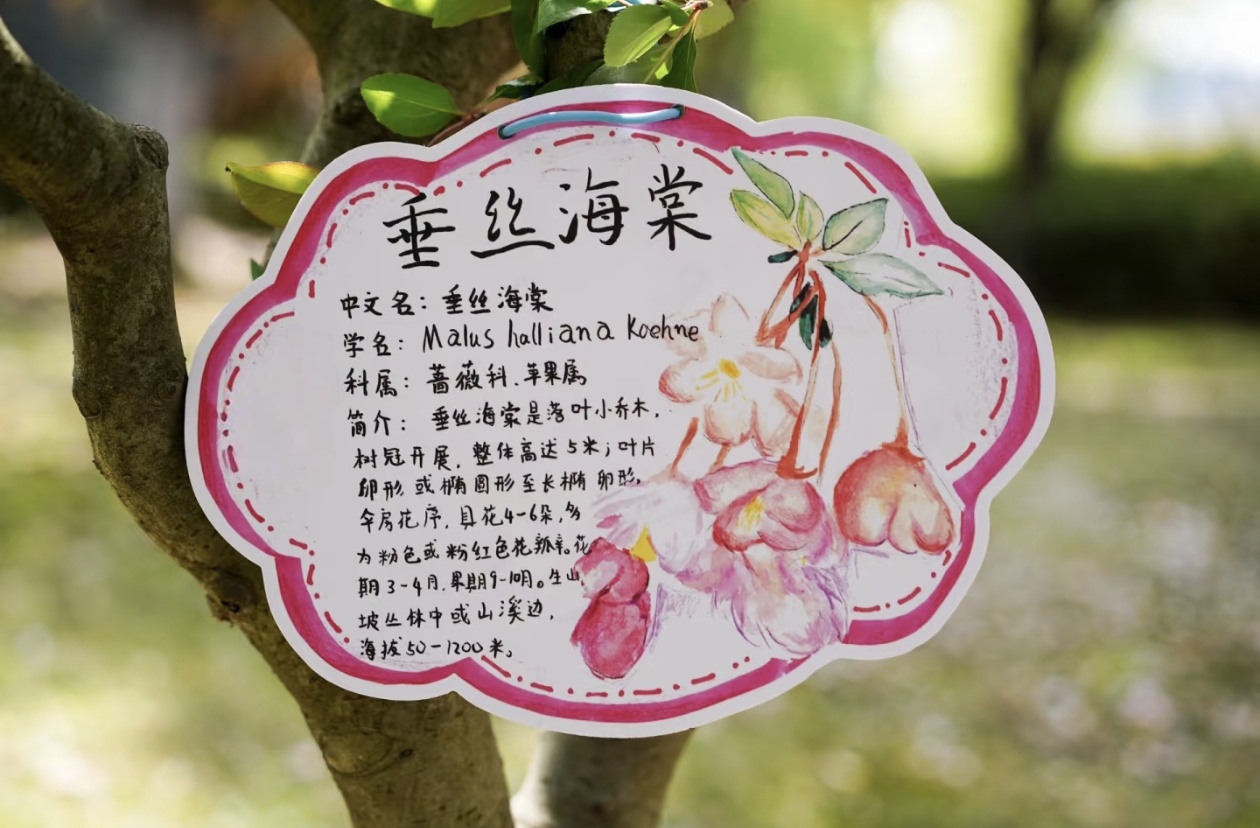 垂丝海棠
中文名：垂丝海棠
学名：Malus halliana Koehne
科属：蔷薇科、苹果属
简介：垂丝海棠是落叶小乔木，
树冠开展，整体高达5米；叶片
卵形或椭圆形至长椭卵形，
伞房花序，具花4-6朵，多
为粉色或粉红色花瓣。花
期3-4月，果期9-10月。生山
坡丛林中或山溪边，
海拔50-1200米。